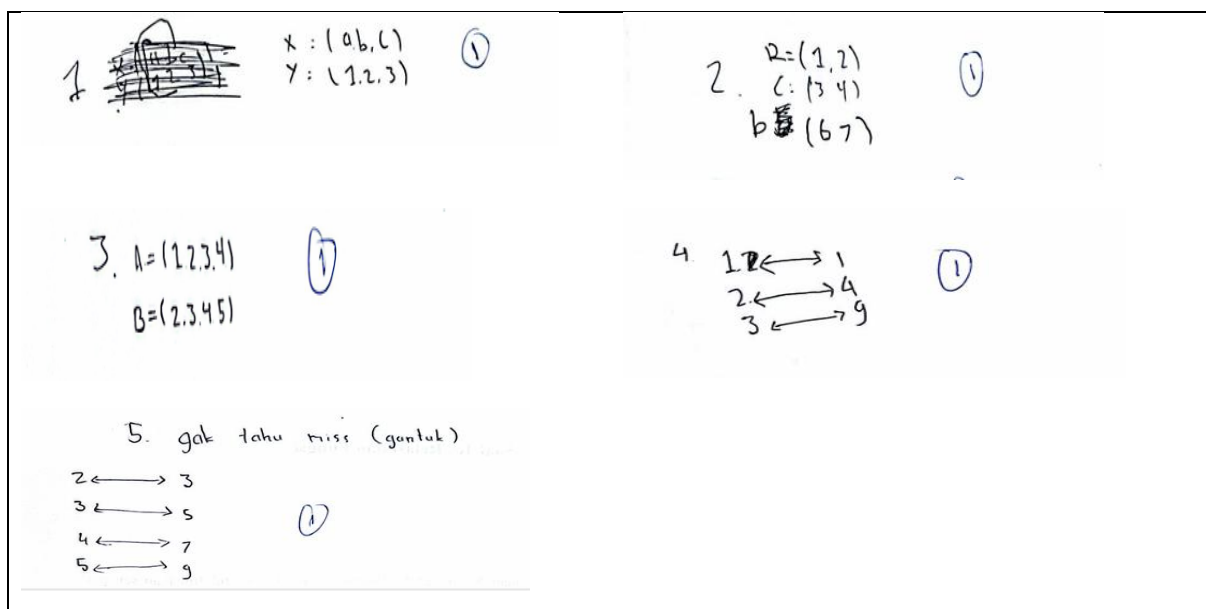 1 X : (a.b, c) ①
Y : (1.2.3)
2. R=(1,2) ①
C: (3 4)
b (6 7)
3. A=(1 2.3.4) ①
B=(2.3.4 5)
4. 1. ↔ 1 ①
2. ↔ 4
3 ↔ 9
5. gak tahu miss (gantuk)
2 ↔ 3
3 ↔ 5 ①
4 ↔ 7
5 ↔ 9